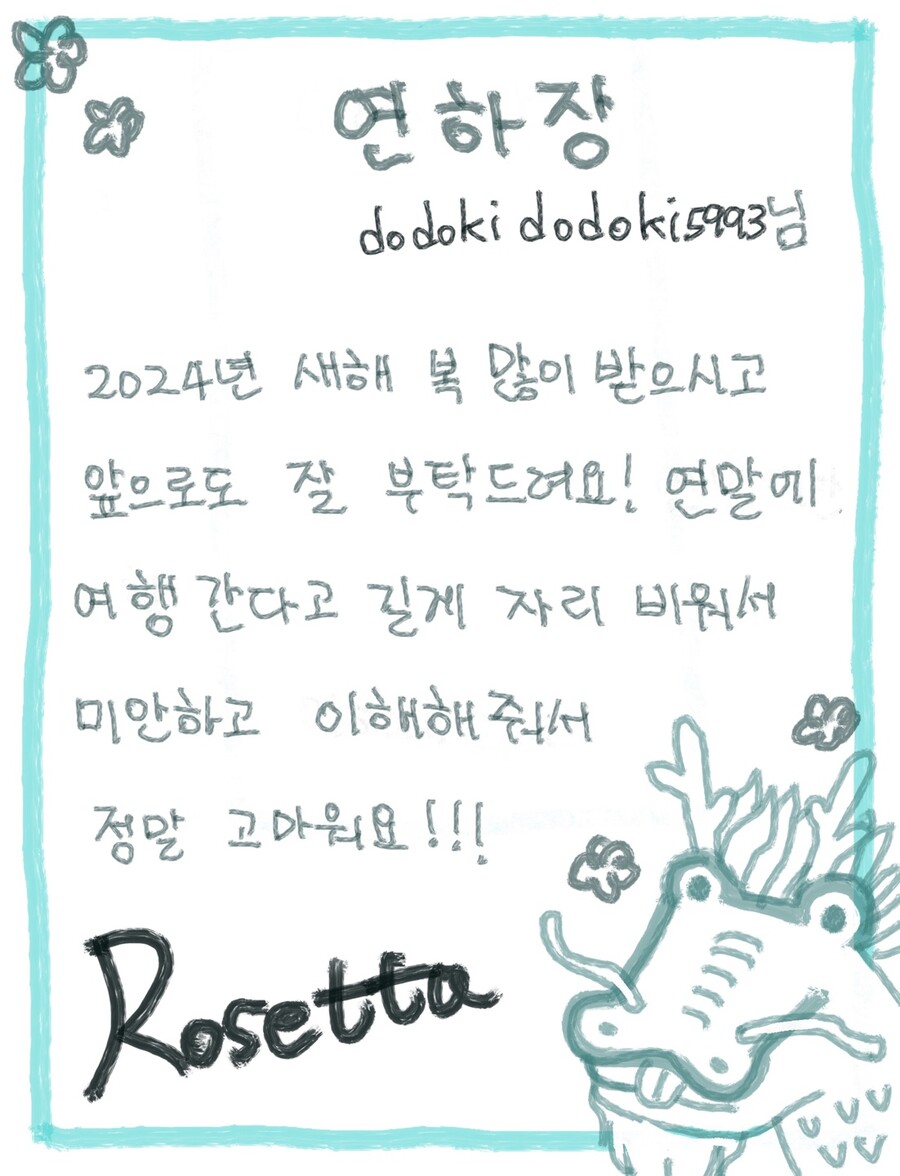 연하장
dodoki dodoki5993님
2024년 새해 복 많이 받으시고
앞으로도 잘 부탁드려요! 연말에
여행 간다고 길게 자리 비워서
미안하고 이해해줘서
정말 고마워요!!!
Rosetta